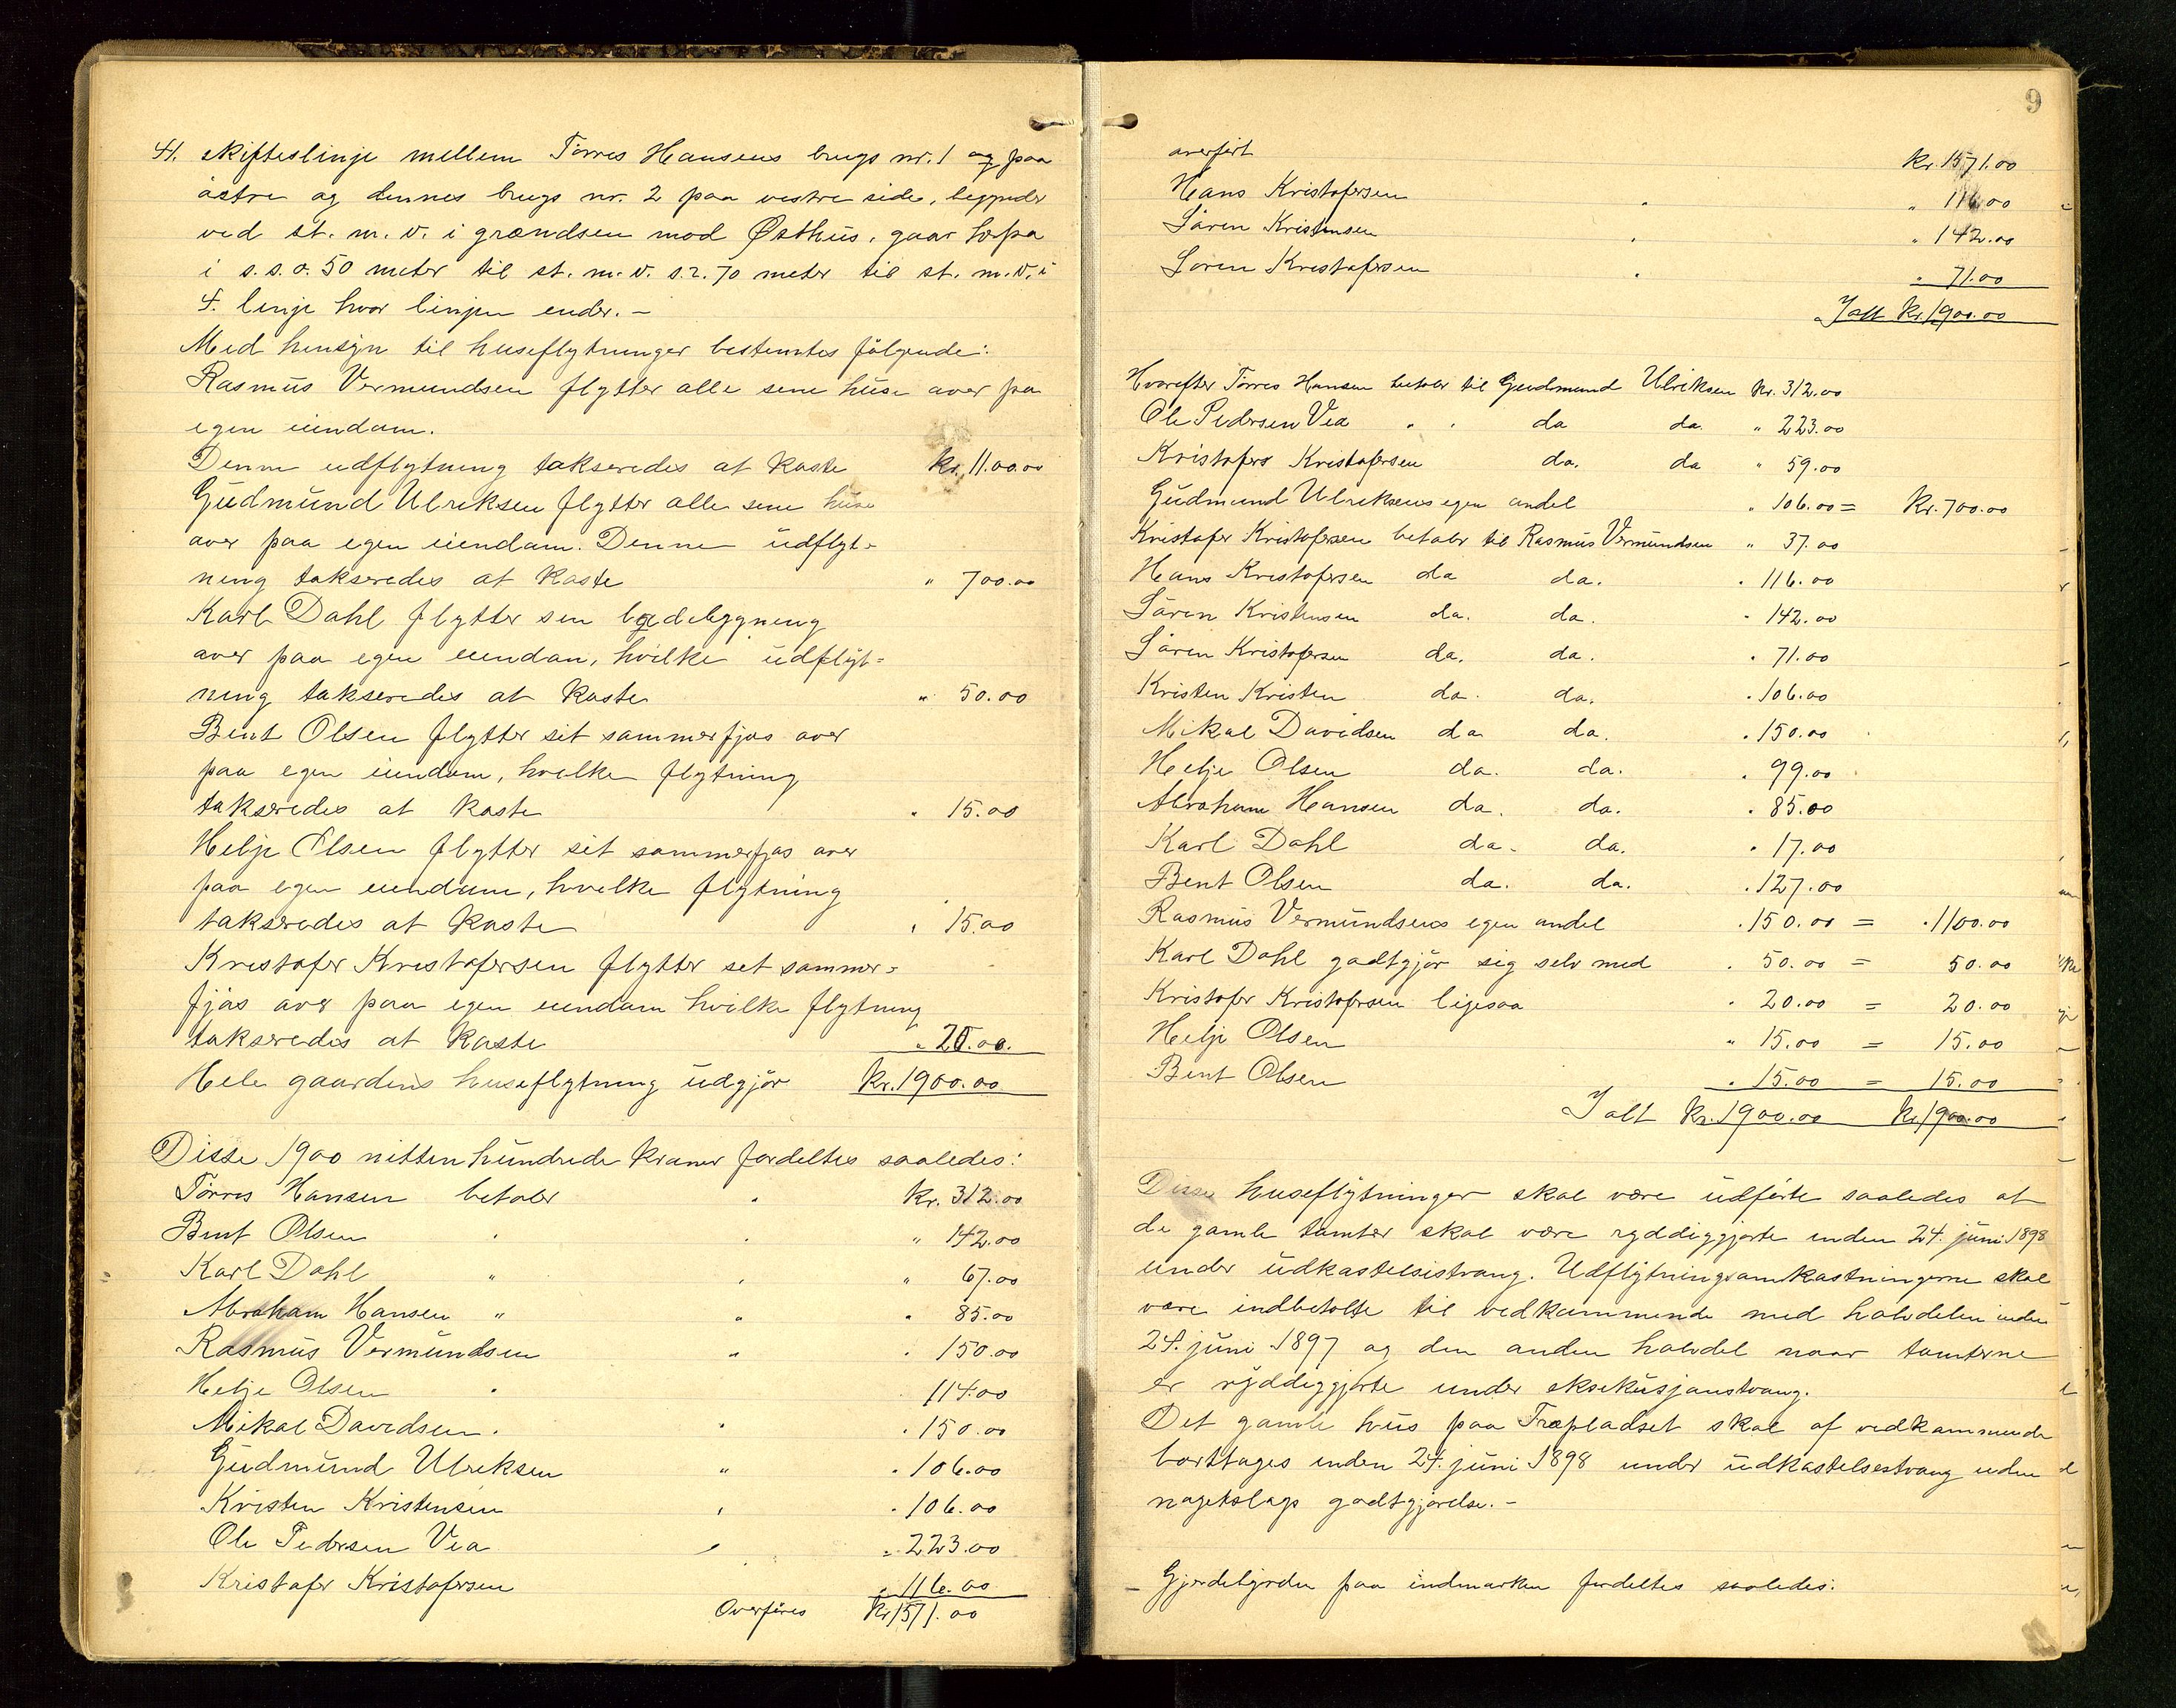 41. skifteslinje mellem Tørres Hansens brugs nr. 1 og paa
østre og dennes brugs nr. 2 paa vestre side, begynder
ved st. m. v. i grændsen mod Østhus, gaar herfra
i s.s.o. 50 meter til st. m. v. s.v. 70 meter til st. m. v. i
4. linje hvor linjen ender. –
Med hensyn til huseflytninger bestemtes følgende:
Rasmus Vermundsen flytter alle sine huse over pa
egen eiendom.
Denne udflytning takseredes at koste kr. 1100.00
Gudmund Ulriksen flytter alle sine huse
over paa egen eiendom. Denne udflyt=
ning takseredes at koste " 700.00
Karl Dahl flytter sin lødebygning
over paa egen eiendom, hvilke udflyt=
ning takseredes at koste " 50.00
Bent Olsen flytter sit sommerfjøs over
paa egen eiendom, hvilke flytning
takseredes at koste " 15.00
Helje Olsen flytter sit sommerfjøs over
paa egen eiendom, hvilke flytning
takseredes at koste " 15.00
Kristofer Kristofersen flytter sit sommer=
fjøs over paa egen eiendom hvilke flytning
takseredes at koste " 20.00.
Hele gaardens huseflytning udgjør kr. 1900.00
Disse 1900 nitten hundrede kroner fordeltes saaledes:
Tørres Hansen betaler " kr. 312.00
Bent Olsen " " " 142.00
Karl Dahl " " " 67.00
Abraham Hansen " " " 85.00
Rasmus Vermundsen " " 150.00
Helje Olsen " 114.00
Mikal Davidsen " " " 150.00
Gudmund Ulriksen " " 106.00
Kristen Kristensen " " 106.00
Ole Pedersen Vea " " 223.00
Kristofer Kristofersen " 116.00
Overføres kr 1571.00
9
overført kr. 1571.00
Hans Kristofersen " " 116.00
Søren Kristensen " " 142.00
Søren Kristofersen " " 71.00
Ialt kr. 1900.00
Hvorefter Tørres Hansen betaler til Gudmund Ulriksen kr. 312.00
Ole Pedersen Vea " " do do. " 223.00
Kristofers Kristofersen do. do " 59.00
Gudmund Ulriksens egen andel " 106.00 = kr. 700.00
Kristofer Kristofersen betaler til Rasmus Vermundsen " 37.00
Hans Kristofersen do do. " 116.00
Søren Kristensen do. do. " 142.00
Søren Kristofersen do. do. " 71.00
Kristen Kristen do. do. " 106.00
Mikal Davidsen do do. " 150.00
Helje Olsen do. do. " 99.00
Abraham Hansen do. do. " 85.00
Karl Dahl do. do. " 17.00
Bent Olsen do. do. " 127.00
Rasmus Vermundsens egen andel " 150.00 = " 1100.00
Karl Dahl godtgjør sig selv med " 50.00 = 50.00
Kristofer Kristofersen ligesaa " 20.00 = 20.00
Helje Olsen " 15.00 = 15.00
Bent Olsen " 15.00 = 15.00
Ialt kr. 1900.00 kr 1900.00
Disse huseflytninger skal være udførte saaledes at
de gamle tomter skal være ryddiggjorte inden 24. juni 1898
under udkastelsistvang. Udflytningsomkostningerne skal
være indbetalte til vedkommende med halvdelen inden
24. juni 1897 og den anden halvdel naar tomterne
er ryddiggjorte under eksekusjonstvang.
Det gamle hus paa Træpladset skal af vedkommende
borttages inden 24. juni 1898 under udkastelsestvang uden
nogetslags godtgjørelse. –
– Gjerdebyrden paa indmarken fordeltes saaledes: